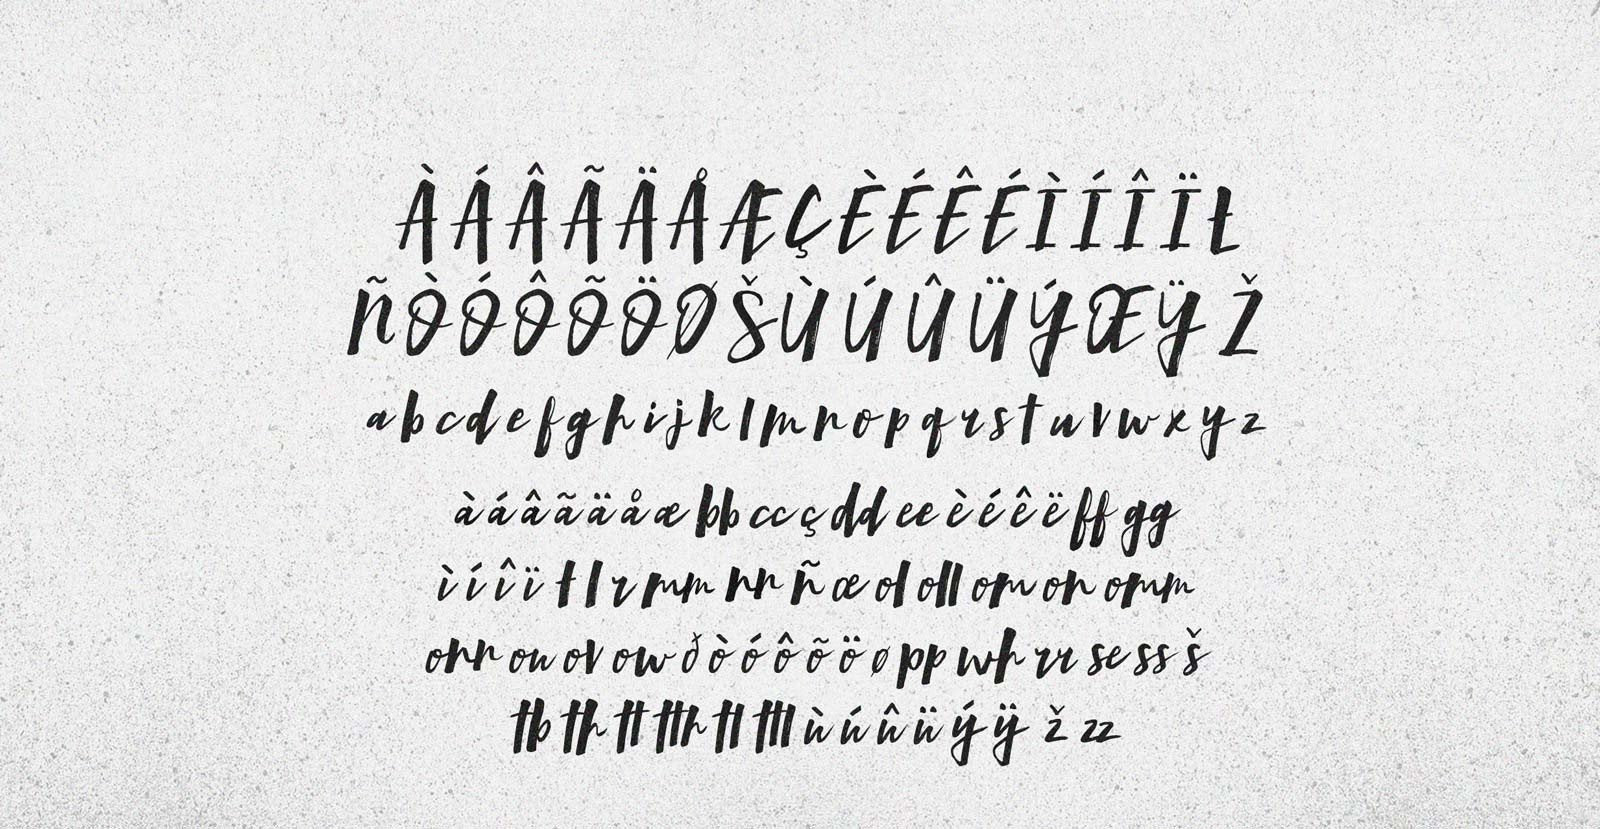 À Á Â Ã Ä Å Æ Ç È É Ê É Ì Í Î Ï Ł
Ñ Ò Ó Ô Õ Ö Ø Š Ù Ú Û Ü Ý Œ Ÿ Ž
a b c d e f g h i j k l m n o p q r s t u v w x y z
à á â ã ä å æ bb cc ç dd ee è é ê ë ff gg
ì í î ï ł l r mm nn ñ œ ol oll om on omm
onn ou ov ow ð ò ó ô õ ö ø pp wh rr se ss š
tb th tt tth tl ttl ù ú û ü ý ÿ ž zz